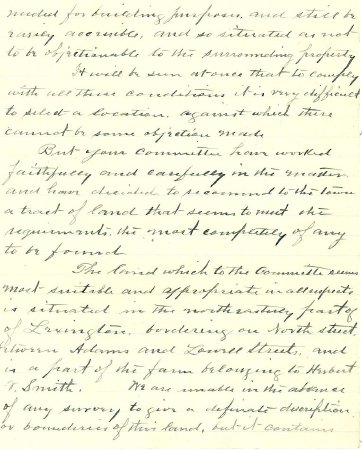 needed for building purposes, and still be
easily accessible, and so situated as not
to be objectionable to the surrounding property
It will be seen at once that to comply
with all these conditions it is very difficult
to select a location, against which there
cannot be some objection made.
But your Committee have worked
faithfully and carefully in the matter
and have decided to recommend to the town
a tract of land that seems to meet the
requirements, the most completely of any
to be found
The land which to the Committee seems
most suitable and appropriate in all respects
is situated in the northeasterly part of
of Lexington, bordering on North street,
between Adams and Lowell Streets, and
is a part of the farm belonging to Herbert
Smith. We are unable in the absence
of any survey to give a definate description
or boundaries of this land, but it contains